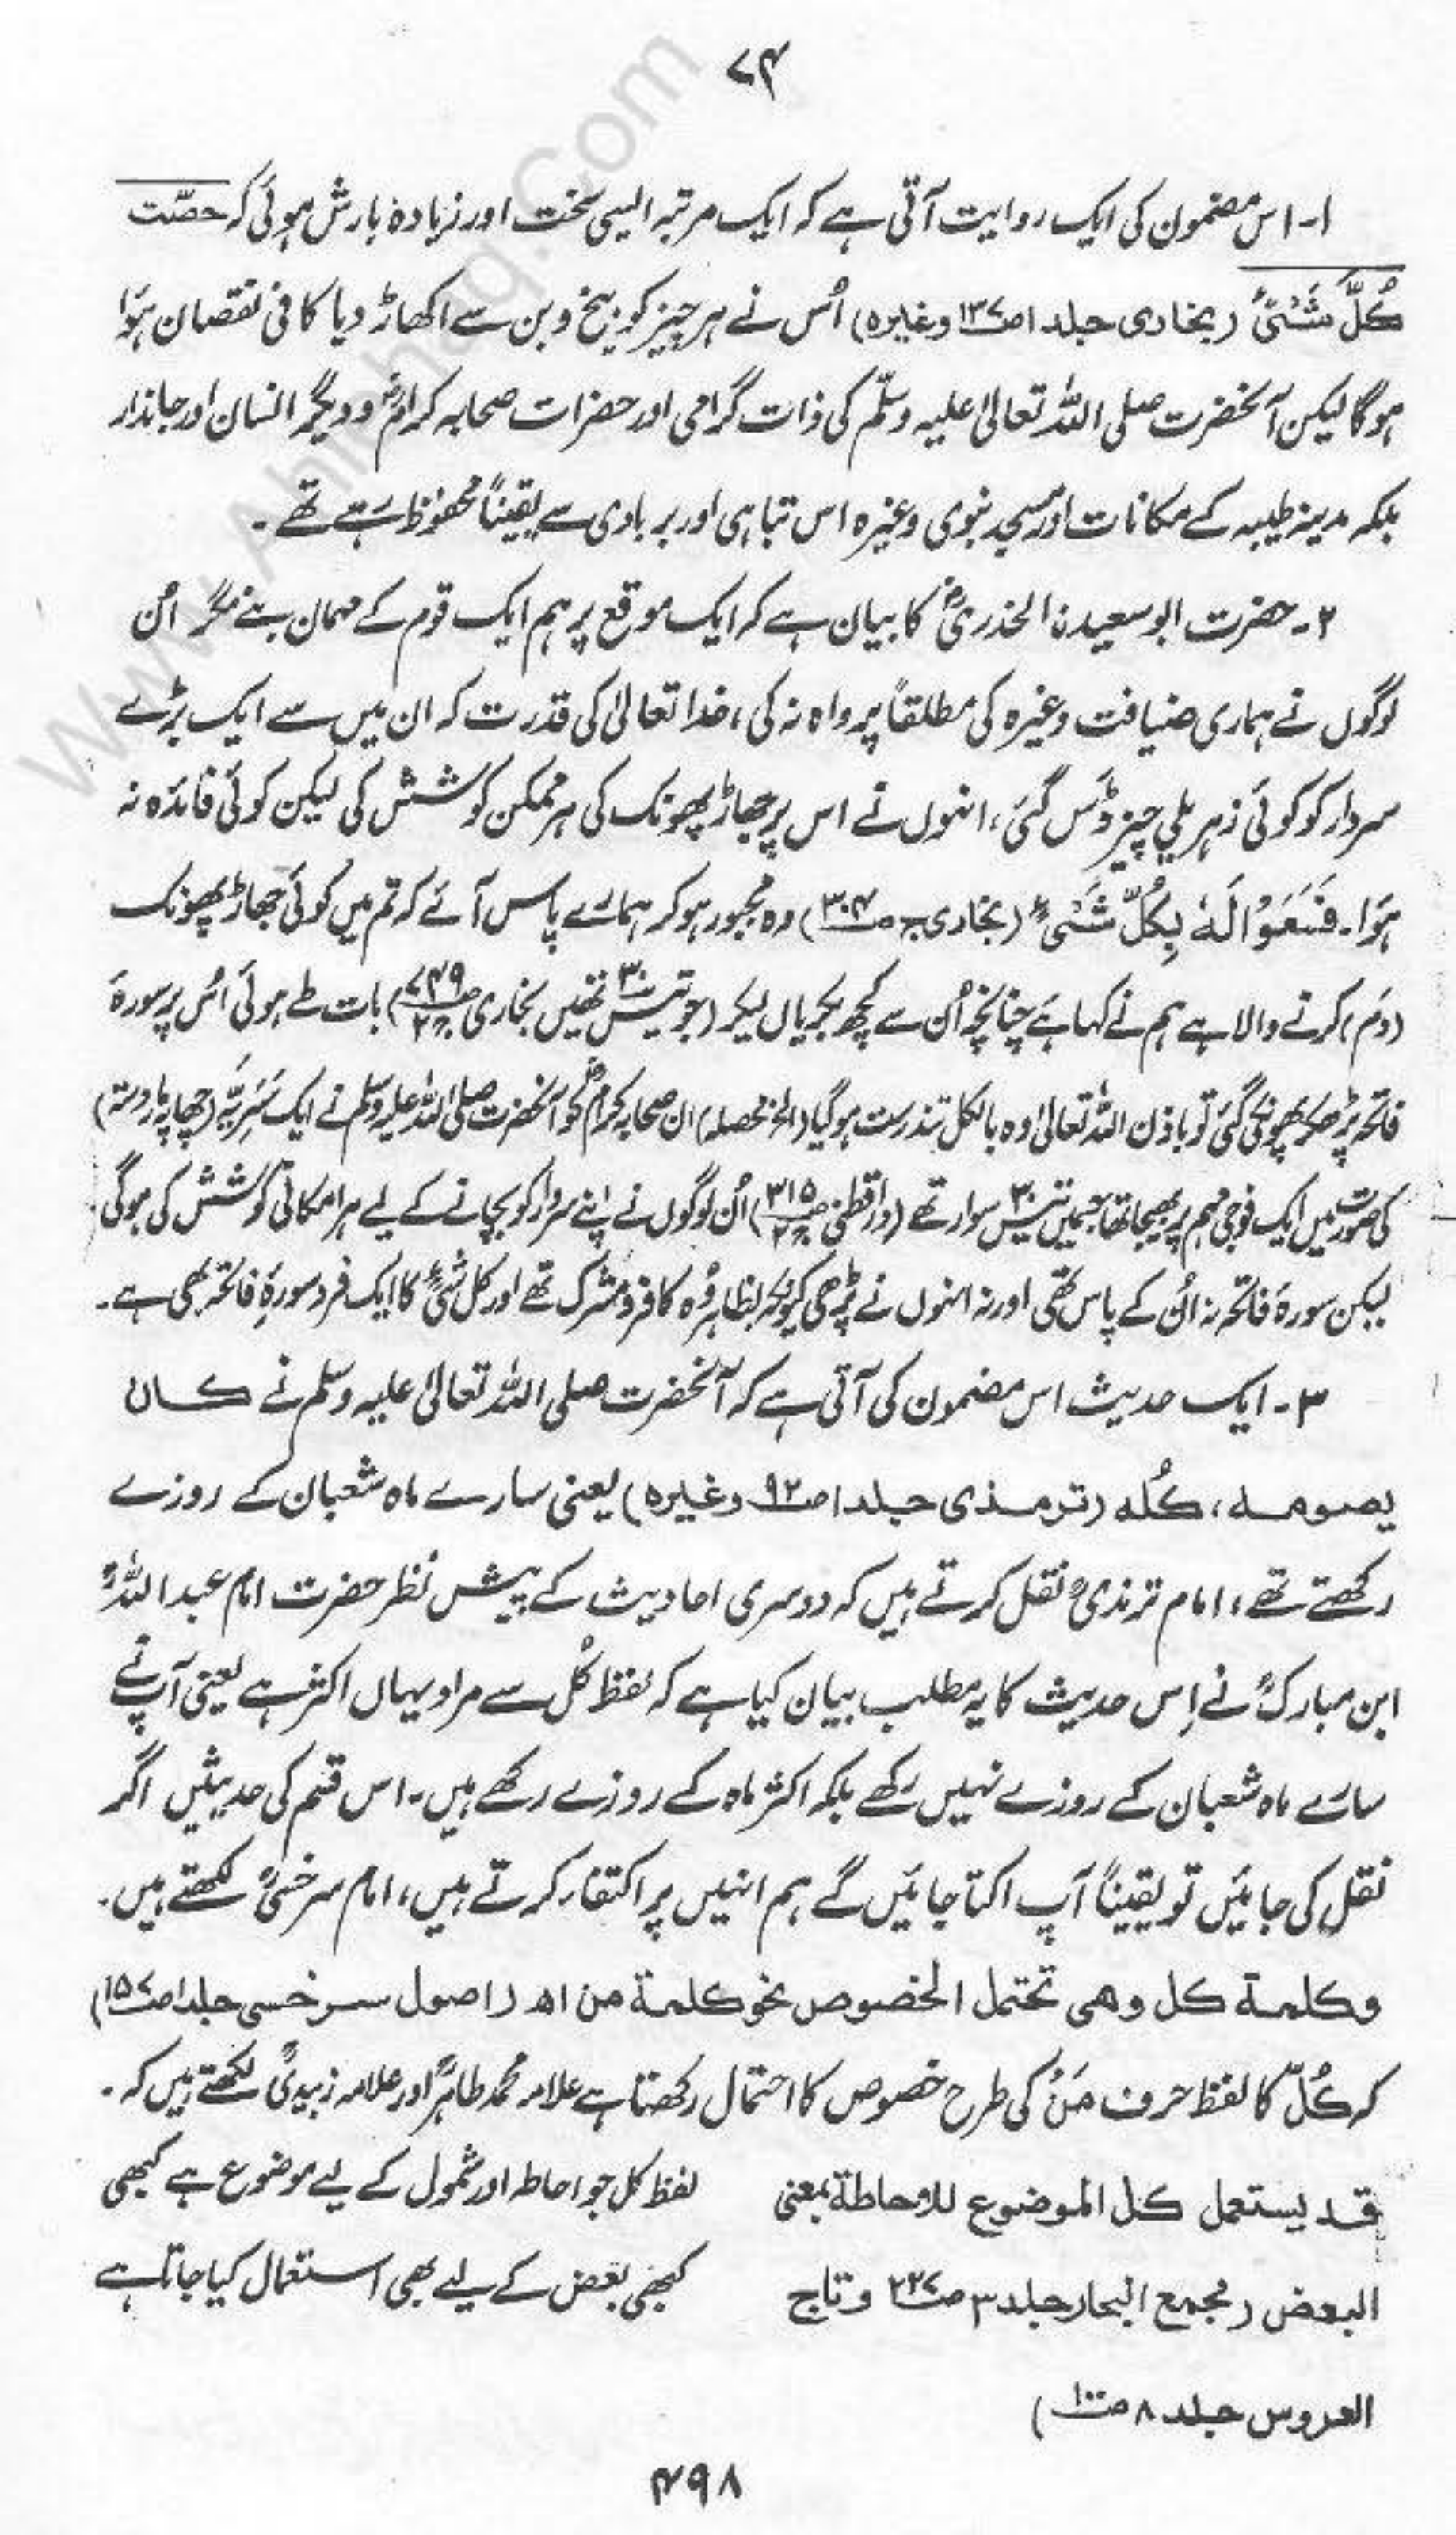 ۷۴
۱۔ اس مضمون کی ایک روایت آتی ہے کہ ایک مرتبہ ایسی سخت اور زیادہ بارش ہوئی کہ حصّت
کُلَّ شَئْیٍ (بخاری جلد ۱ ص۱۳۷ وغیرہ) اُس نے ہر چیز کو بیخ و بن سے اکھاڑ دیا کافی نقصان ہوَا
ہوگا لیکن آنحضرت صلی اللہ تعالیٰ علیہ وسلّم کی ذات گرامی اور حضرات صحابہ کرامؓ و دیگر انسان اور جاندار
بلکہ مدینہ طیبہ کے مکانات اور مسجد نبوی وغیرہ اس تباہی اور بربادی سے یقیناً محفوظ رہے تھے ۔
۲۔ حضرت ابو سعیدن الخدریؓ کا بیان ہے کہ ایک موقع پر ہم ایک قوم کے مہمان بنے مگر اُن
لوگوں نے ہماری ضیافت وغیرہ کی مطلقاً پرواہ نہ کی، خدا تعالیٰ کی قدرت کہ ان میں سے ایک بڑے
سردار کو کوئی زہریلی چیز ڈس گئی، انہوں نے اس پر جھاڑ پھونک کی ہر ممکن کوشش کی لیکن کوئی فائدہ نہ
ہوَا۔ فَسَعَوْا لَہٗ بِکُلِّ شَئْیٍ (بخاری ج ص۳۰۴) وہ مجبور ہو کر ہمارے پاس آئے کہ تم میں کوئی جھاڑ پھونک
(دَم) کرنے والا ہے ہم نے کہا ہے چنانچہ اُن سے کچھ بکریاں لیکر (جو تیس ۳۰ تھیں بخاری ص۷۴۹ ج۲) بات طے ہوئی اُس پر سورۃ
فاتحہ پڑھ کر پھونکی گئی تو باذن اللہ تعالیٰ وہ بالکل تندرست ہوگیا (الخ محصلہ) ان صحابہ کرامؓ کو آنحضرت صلی اللہ علیہ وسلم نے ایک سَرِیَّہ (چھاپہ مار دستہ)
کی صورت میں ایک فوجی مہم پر بھیجا تھا جسمیں تیس ۳۰ سوار تھے (دارقطنی ص۳۱۵ ج۲) اُن لوگوں نے اپنے سردار کو بچانے کے لیے ہر امکانی کوشش کی ہوگی
لیکن سورۃ فاتحہ نہ اُن کے پاس تھی اور نہ انہوں نے پڑھی کیونکہ بظاہر وُہ کافر و مشرک تھے اور کل شئیٍ کا ایک فرد سورۂ فاتحہ بھی ہے۔
۳۔ ایک حدیث اس مضمون کی آتی ہے کہ آنحضرت صلی اللہ تعالیٰ علیہ وسلم نے کان
یصومہ، کُلّہ (ترمذی جلد ۱ ص۹۲ وغیرہ) یعنی سارے ماہ شعبان کے روزے
رکھتے تھے، امام ترمذیؒ نقل کرتے ہیں کہ دوسری احادیث کے پیش نظر حضرت امام عبد اللہؒ
ابن مبارکؒ نے اِس حدیث کا یہ مطلب بیان کیا ہے کہ لفظ کُل سے مراد یہاں اکثر ہے یعنی آپ نے
سارے ماہ شعبان کے روزے نہیں رکھے بلکہ اکثر ماہ کے روزے رکھے ہیں۔ اس قسم کی حدیثیں اگر
نقل کی جائیں تو یقیناً آپ اکتا جائیں گے ہم انہیں پر اکتفاء کرتے ہیں، امام سرخسیؒ لکھتے ہیں۔
وکلمۃ کل وھی تحتمل الخصوص نحو کلمۃ من اھ (اصول سرخسی جلد ۱ ص۱۵۷)
کہ کُلّ کا لفظ حرف مَنْ کی طرح خصوص کا احتمال رکھتا ہے علامہ محمد طاہرؒ اور علامہ زبیدیؒ لکھتے ہیں کہ ۔
قد یستعمل کل الموضوع للاحاطۃ بمعنی
البعض (مجمع البحار جلد ۳ ص۲۲۷ وتاج
العروس جلد ۸ ص۱۰۰)
لفظ کل جو احاطہ اور شمول کے لیے موضوع ہے کبھی
کبھی بعض کے لیے بھی استعمال کیا جاتا ہے
۴۹۸
www.Ahlehaq.Com